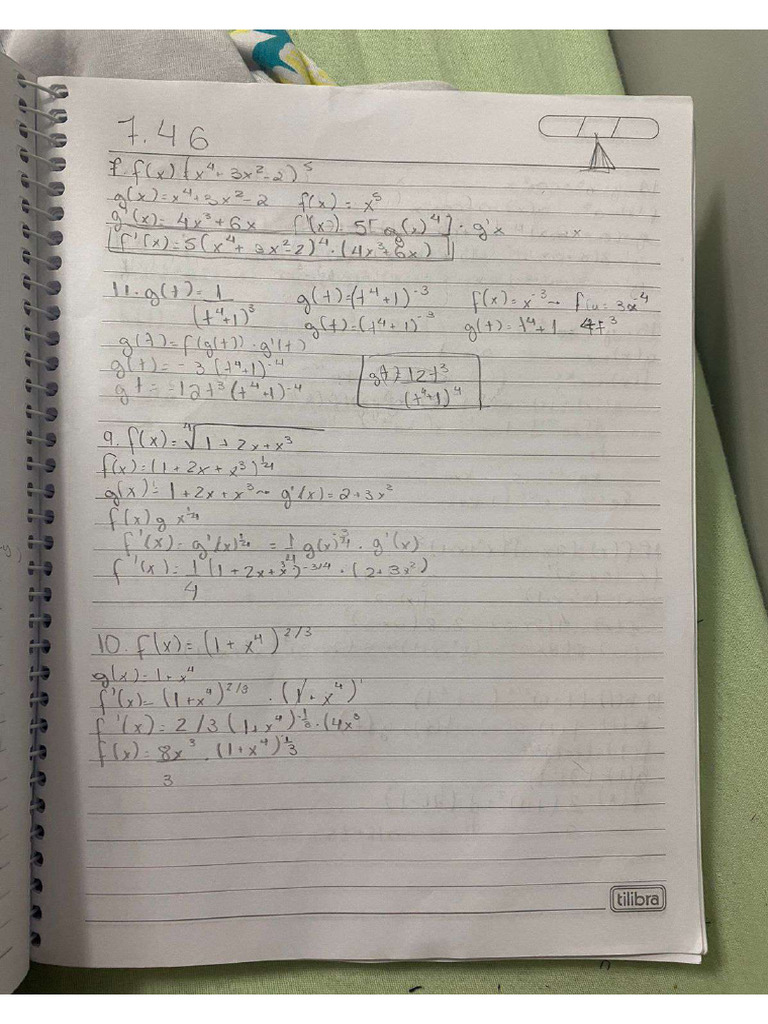 7.46
7. f(x) (x⁴+3x²-2)⁵
g(x)=x⁴+3x²-2 f(x)=x⁵
g'(x)=4x³+6x f'(x)= 5[g(x)⁴]·g'x
f'(x)=5(x⁴+3x²-2)⁴·(4x³+6x)
11. g(t)=1/(t⁴+1)³ g(t)=(t⁴+1)⁻³ f(x)=x⁻³→ f(u= 3x⁻⁴
g(t)=(t⁴+1)⁻³ g(t)=t⁴+1 4t³
g(t)=f(g(t))·g'(t)
g(t)=-3(t⁴+1)⁻⁴
gt=-12t³(t⁴+1)⁻⁴ g(t)=12t³/(t⁴+1)⁴
9. f(x)=⁴√1+2x+x³
f(x)=(1+2x+x³)^1/4
g(x)=1+2x+x³→ g'(x)=2+3x²
f(x) g x^1/4
f'(x)=g'(x)^1/4 =1/4 g(x)^-3/4·g'(x)
f'(x)=1/4(1+2x+x³)^-3/4·(2+3x²)
10. f(x)=(1+x⁴)^2/3
g(x)=1+x⁴
f'(x)=(1+x⁴)^2/3·(1+x⁴)'
f'(x)=2/3(1+x⁴)^-1/3·(4x³
f(x)=8x³/3·(1+x⁴)^-1/3
tilibra